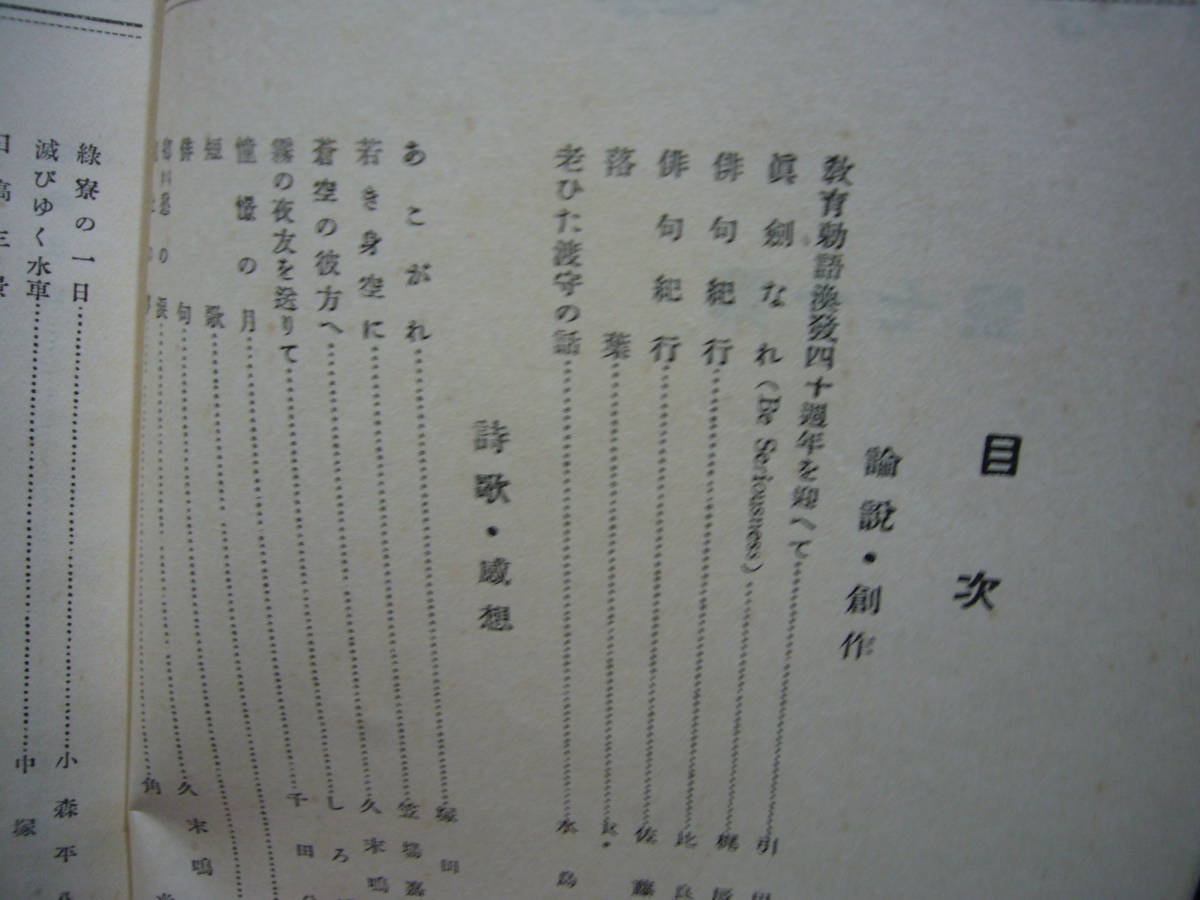 目次
論說・創作
敎育勅語渙發四十週年を迎へて
眞劍なれ(Be Seriousness)
俳句紀行
俳句紀行 比良
落葉
老ひた渡守の話 水島
詩歌・感想
あこがれ 塚田
若き身空に
蒼空の彼方へ 久末鳴
霧の夜友を送りて しろ
憧憬の月 千田
短歌
俳句 久末鳴
角
綠寮の一日 小森平
滅びゆく水車 中塚